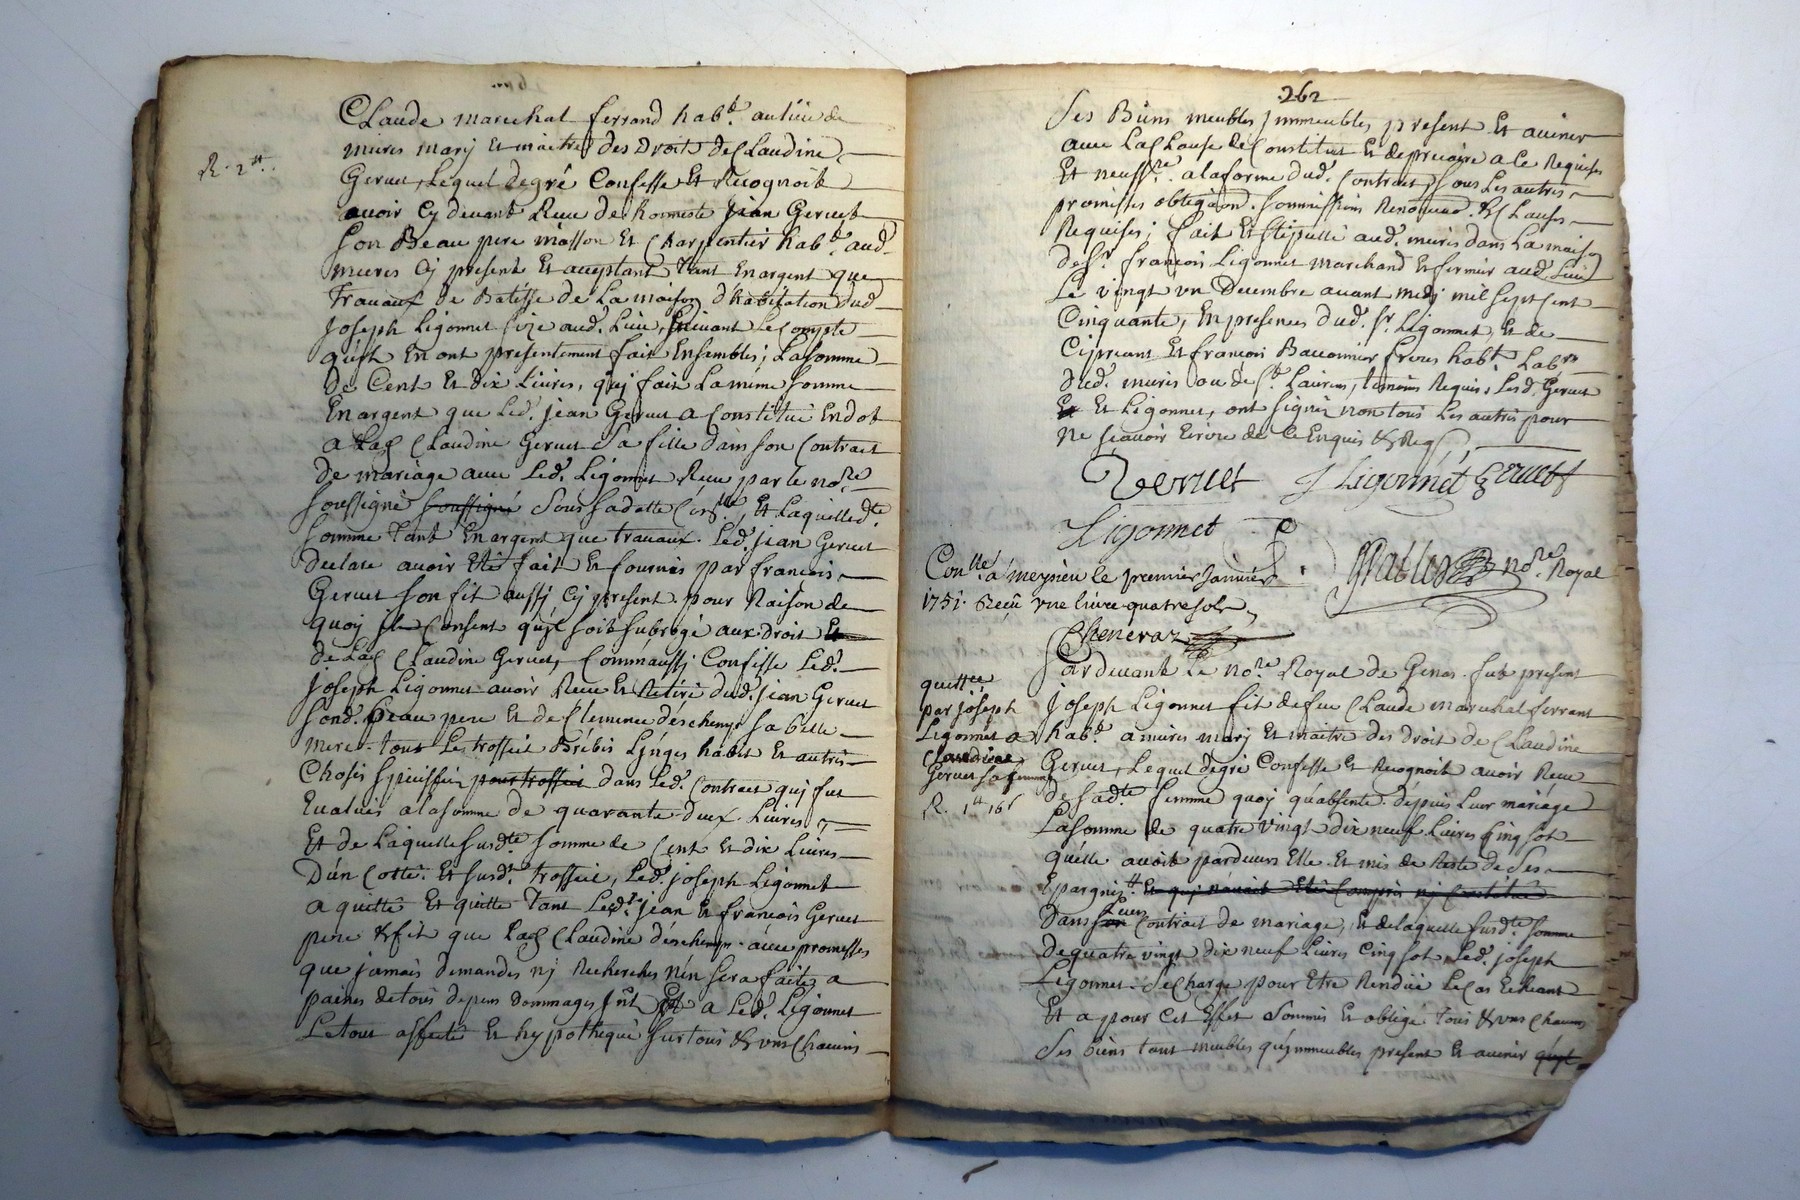 R. 2<sup>tt</sup>.
Claude marechal ferrand hab<sup>t</sup>. au lieu de
mures marÿ et maitre des droits de Claudine
Geruet, Lequel degré Confesse Et Recognoit
avoir cy devant Reçu de honneste jean Geruet
son Beau pere masson Et Charpentier hab<sup>t</sup>. aud<sup>t</sup>.
mures cy present Et acceptant Tant En argent que
Travaux de Batisse de La maison d'habitation dud<sup>t</sup>
joseph Ligonnet size aud<sup>t</sup>. Lieu, suivant Le Compte
qu'ils En ont presentement fait Ensembles; La somme
de Cent Et dix Livres, quj fait La même somme
En argent que Led<sup>t</sup>. jean Geruet a Constitué En dot
a Lad Claudine Geruet Sa fille dans son Contract
de mariage avec Led<sup>t</sup>. Ligonnet Reçu par le no<sup>re</sup>
soussigné soussigné sous sa datte, Et Laquelle d<sup>te</sup>
somme Tant En argent que travaux Led<sup>t</sup>. jean Geruet
declare avoir Eté fait Et fournis par francois
Geruet son fils aussj cy present. pour Raison de
quoy il Consent qu'il soit subrogé aux droit Et
de Lad Claudine Geruet, Comm'aussj Confesse Led<sup>t</sup>
joseph Ligonnet avoir Reçu Et Retiré dud<sup>t</sup>. jean Geruet
sond<sup>t</sup>. Beau pere Et de Clemence deschamps sa belle
mere tout Les trosseil Brebis Linges habit Et autres
Choses specifiés pour trosseil dans Led<sup>t</sup>. Contract quj fut
Evalués a la somme de quarante deux Livres
Et de Laquelle susd<sup>te</sup> somme de Cent Et dix Livres
D'un Cotté. Et susd<sup>t</sup>. trosseil, Led<sup>t</sup>. joseph Ligonnet
a quitté Et quitte Tant Led<sup>t</sup>. jean Et francois Geruet
pere & fils que Lad Claudine deschamps avec promesses
que jamais demandes nj Recherches n'en sera faite a
paines de tous depens dommages Et a Led<sup>t</sup>. Ligonnet
Le tout affecté Et hypothequé sur tous & uns Chacuns
262
Ses Biens meubles jmmeubles present Et avenir
avec La Clause de Constitut Et de precaire a Ce Requises
Et neuss<sup>re</sup>. a la forme dud<sup>t</sup>. Contract, sous Les autres
promisses obligaon. soumissions Renon. & Clauses
Requises; fait Et stipullé aud<sup>t</sup>. mures dans La maison
de S<sup>r</sup>. francois Ligonnet marchand Et fermier aud<sup>t</sup>. Lieu
Le vingt un Decembre avant midj mil sept Cent
Cinquante, En presences dud<sup>t</sup>. S<sup>r</sup>. Ligonnet, Et de
Cipriant Et francois Bauonnier freres hab<sup>t</sup>. Lab<sup>rs</sup>
dud<sup>t</sup>. mures ou de S<sup>t</sup>. Laurens, temoins Requis, Lesd. Geruet
Et Et Ligonnet, ont signés non tous Les autres pour
ne sçavoir Ecrire de Ce Enquis & Req
Geruet J Ligonnet Geruet
Ligonnet
no<sup>re</sup>. Royal
Con<sup>lle</sup> a meysieu le premier Janvier
1751. Reçu une livre quatre sols
Cheneraz
quittce
par joseph
Ligonnet a
Claudine
Geruet sa femme
R. 1<sup>tt</sup> 16<sup>s</sup>
Par devant Le no<sup>re</sup>. Royal de Genas. fut present
joseph Ligonnet fils de feu Claude marechal ferrant
hab<sup>t</sup>. a mures marj Et maitre des droit de Claudine
Geruet, Lequel degré Confesse Et Recognoit avoir Reçu
de sad<sup>te</sup>. femme quoy qu'absente depuis Leur mariage
La somme de quatre vingt dix neuf Livres Cinq sols
qu'elle avoit pardevers Elle Et mis de Reste de Ses
Epargnes Et quj n'avait Eté Compris nj Constitué
Dans son Leur Contract de mariage, Et de laquelle susd<sup>te</sup> somme
de quatre vingt dix neuf Livres Cinq sols Led<sup>t</sup>. joseph
Ligonnet Se Charge pour Etre Rendüe Le Cas Echeant
Et a pour Cet Effet Soumis Et obligé Tous & uns Chacuns
Ses biens tant meubles qu'jmmeubles present Et avenir qu'il